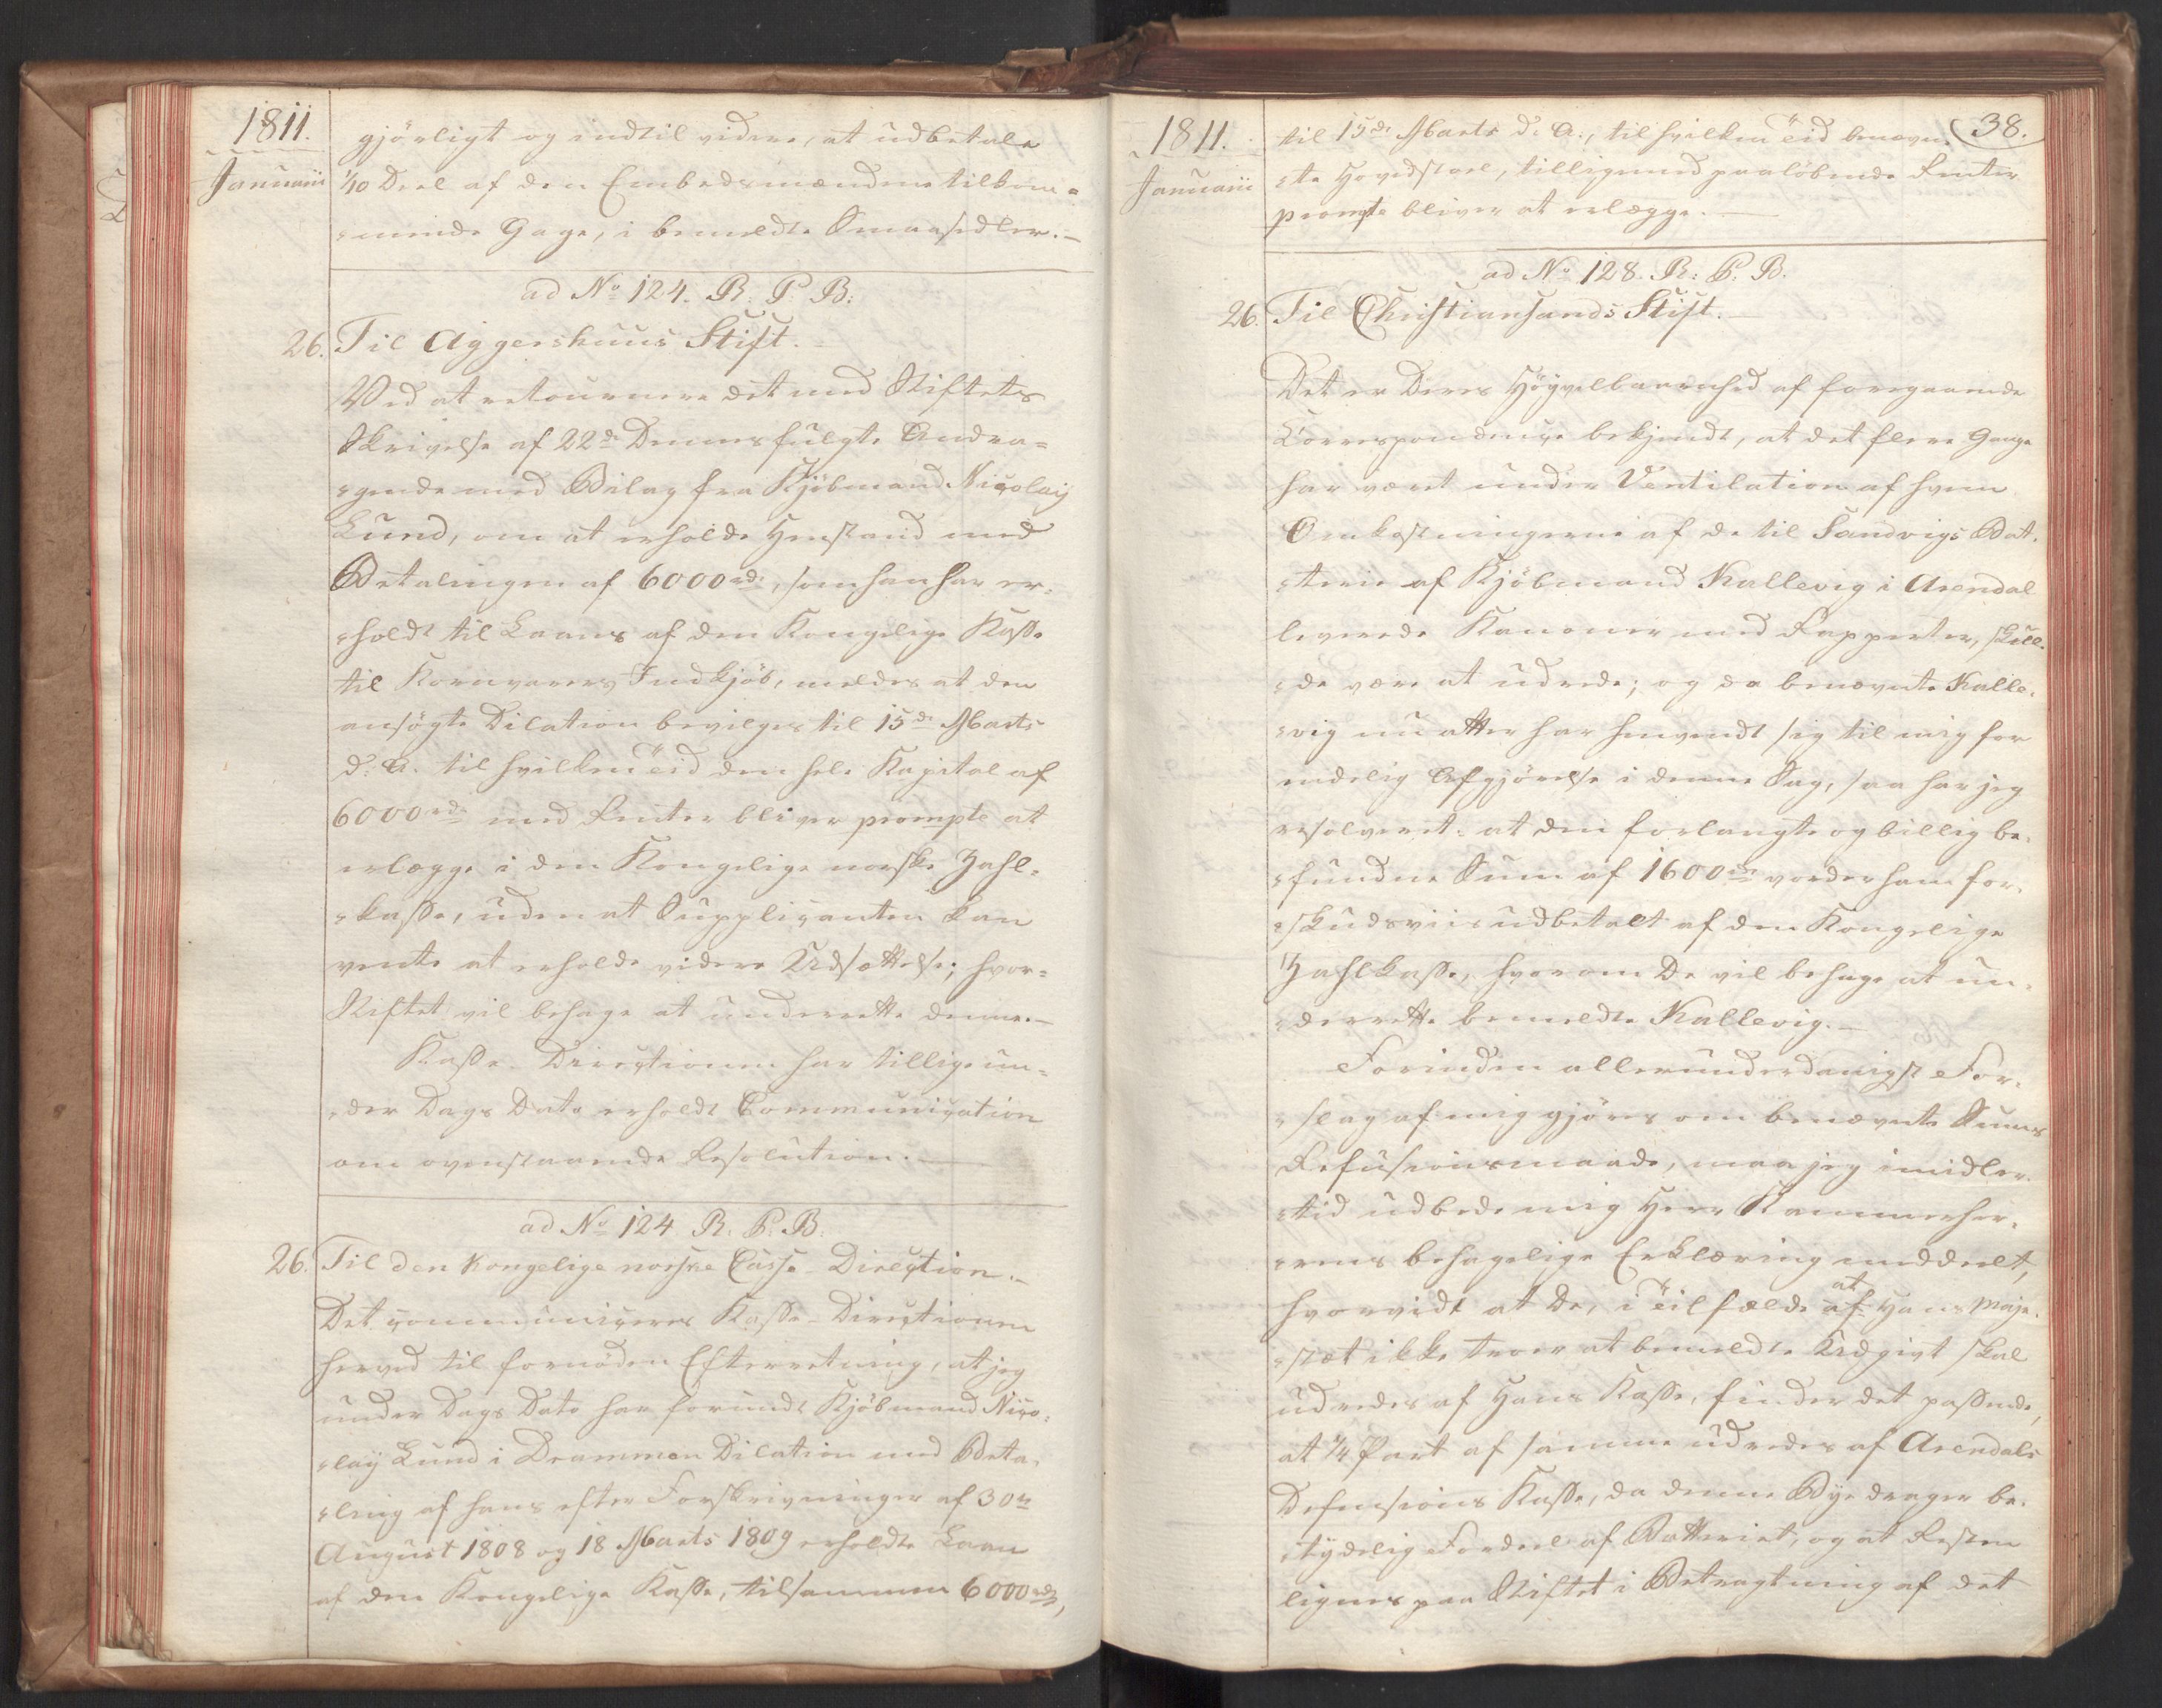 1811.
Januarii
gjörligt og indtil videre, at udbetale
1/10 Deel af den Embedsmændene tilkom=
=mende Gage, i bemeldte Smaasedler.-
ad No 124. R. P. B:
26. Til Aggershuus Stift.
Ved at retournere det med Stiftets
Skrivelse af 22de Dennes fulgte Andra=
=gende med Bilag fra Kjöbmand Nicolaij
Lund, om at erholde Henstand med
Betalingen af 6000rd, som han har er=
=holdt til Laans af den Kongelige Kasse
til Kornvarers Indkjöb, meldes at den
ansögte Dilation bevilges til 15de Marts
d: A. til hvilken Tid den hele Kapital af
6000rd med Renter bliver prompte at
erlægge i den Kongelige norske Zahl=
=kasse, uden at Supplicanten kan
vente at erholde videre Udsættelse; hvor=
Stiftet vil behage at underrette denne.-
Kasse-Directionen har tillige un=
=der Dags Dato erholdt Communication
om ovenstaaende Resolution.-
ad No 124 R. P. B.
26. Til den kongelige norske Casse-Direction.-
Det communiceres Kasse-Directionen
herved til fornöden Efterretning, at jeg
under Dags Dato har forundt Kjöbmand Nico=
=laij Lund i Drammen Dilation med Beta=
=ling af hans efter Forskrivninger af 30te
August 1808 og 18 Marts 1809 erholdte Laan
af den Kongelige Kasse, tilsammen 6000rd,
38.
1811.
Januarii
til 15de Marts d: A:, til hvilken Tid benævn=
=te Hovedstoel, tilligemed paalöbende Renter
prompte bliver at erlægge.-
ad No 128. R: P. B.
26. Til Christiansands Stift.-
Det er Deres Höyvelbaarenhed af foregaaende
Correspondence bekjendt, at det flere Gange
har været under Ventilation af hvem
Omkostningerne af de til Sandvigs Bat=
=terie af Kjöbmand Kallevig i Arendal
leverede Kanoner med Rapperter, skull=
=de være at udrede; og da benævnte Kalle=
=vig nu atter har henvendt sig til mig for
endelig Afgjörelse i denne Sag, saa har jeg
resolveret: at den forlangte og billig be=
=fundne Sum af 1600rd vorder ham for=
=skudsviis udbetalt af den Kongelige
Zahlkasse, hvorom De vil behage at un=
=derrette bemeldte Kallevig.-
Forinden allerunderdanigst For=
=slag af mig gjöres om benævnte Sums
Refusionsmaade, maa jeg imidler=
=tid udbede mig Herr Kammerher=
=rens behagelige Erklæring meddeelt,
hvorvidt at De, i Tilfælde af at Hans Maje=
=stæt ikke troer at bemeldte Udgivt skal
udredes af Hans Kasse, finder det passende,
at 1/4 Part af samme udredes af Arendals
Defensions Kasse, da denne Bye drager be=
=tydelig Fordeel af Batteriet, og at Resten
lignes paa Stiftet i Betragtning af det